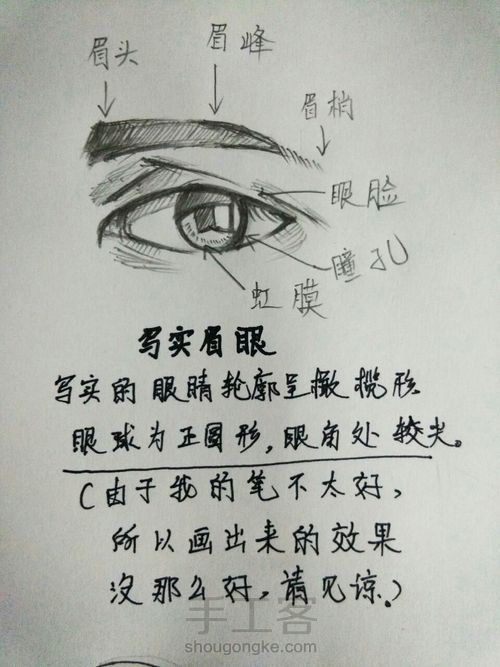 眉头
眉峰
眉梢
眼脸
瞳孔
虹膜
写实眉眼
写实的眼睛轮廓呈橄榄形
眼球为正圆形，眼角处较尖。
（由于我的笔不太好，
所以画出来的效果
没那么好，请见谅。）
手工客
shougongke.com